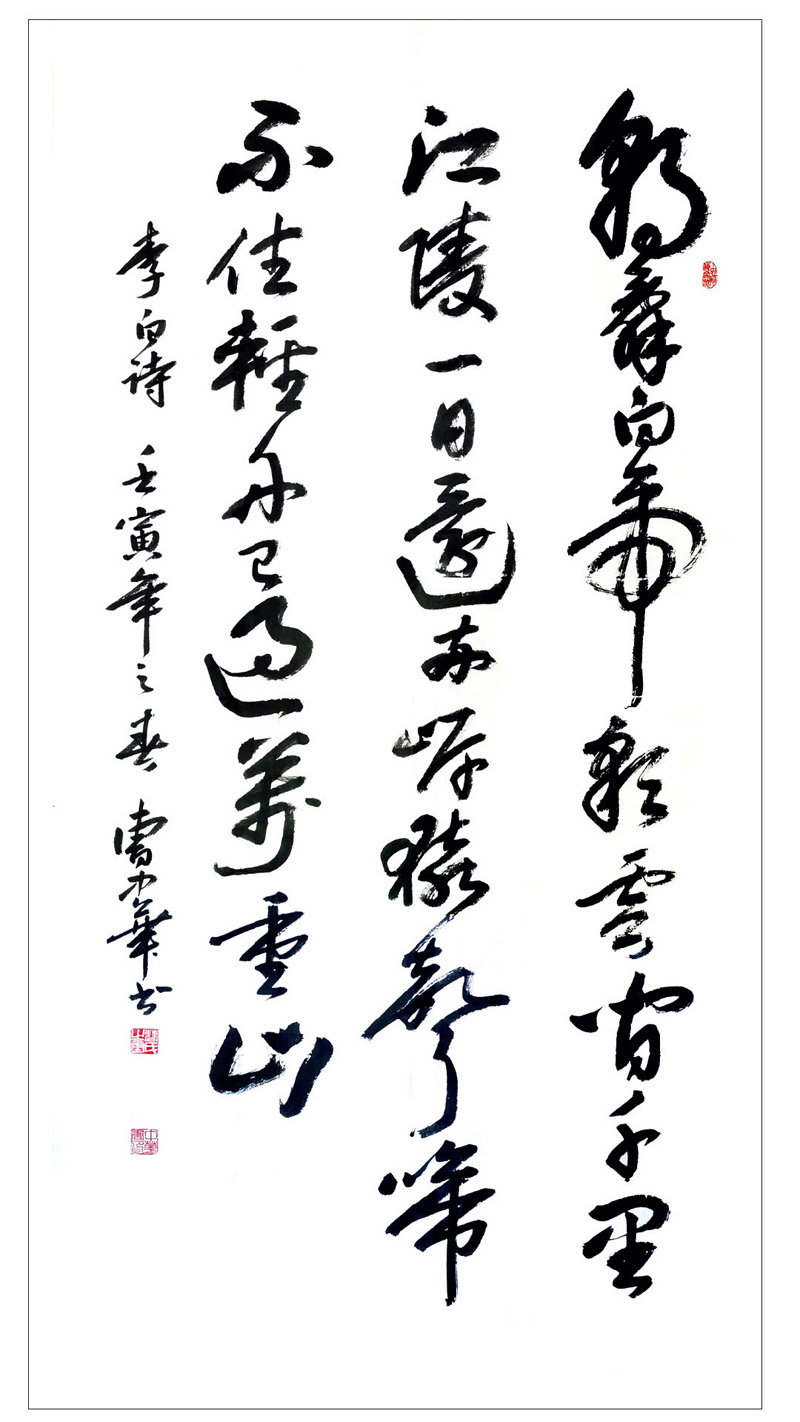 朝辭白帝彩雲間千里
江陵一日還兩岸猿聲啼
不住輕舟已過萬重山
李白诗 壬寅年之春 曹中華书